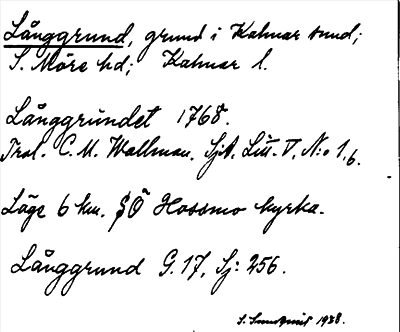 Långgrund, grund i Kalmar sund;
S. Möre hd; Kalmar l.
Långgrundet 1768.
Trol. C. M. Wallman. SjA. Litt. V. N:o 1,6.
Läge 6 km. SÖ Hossmo kyrka.
Långgrund G. 17, Sj: 256.
S. 1938.